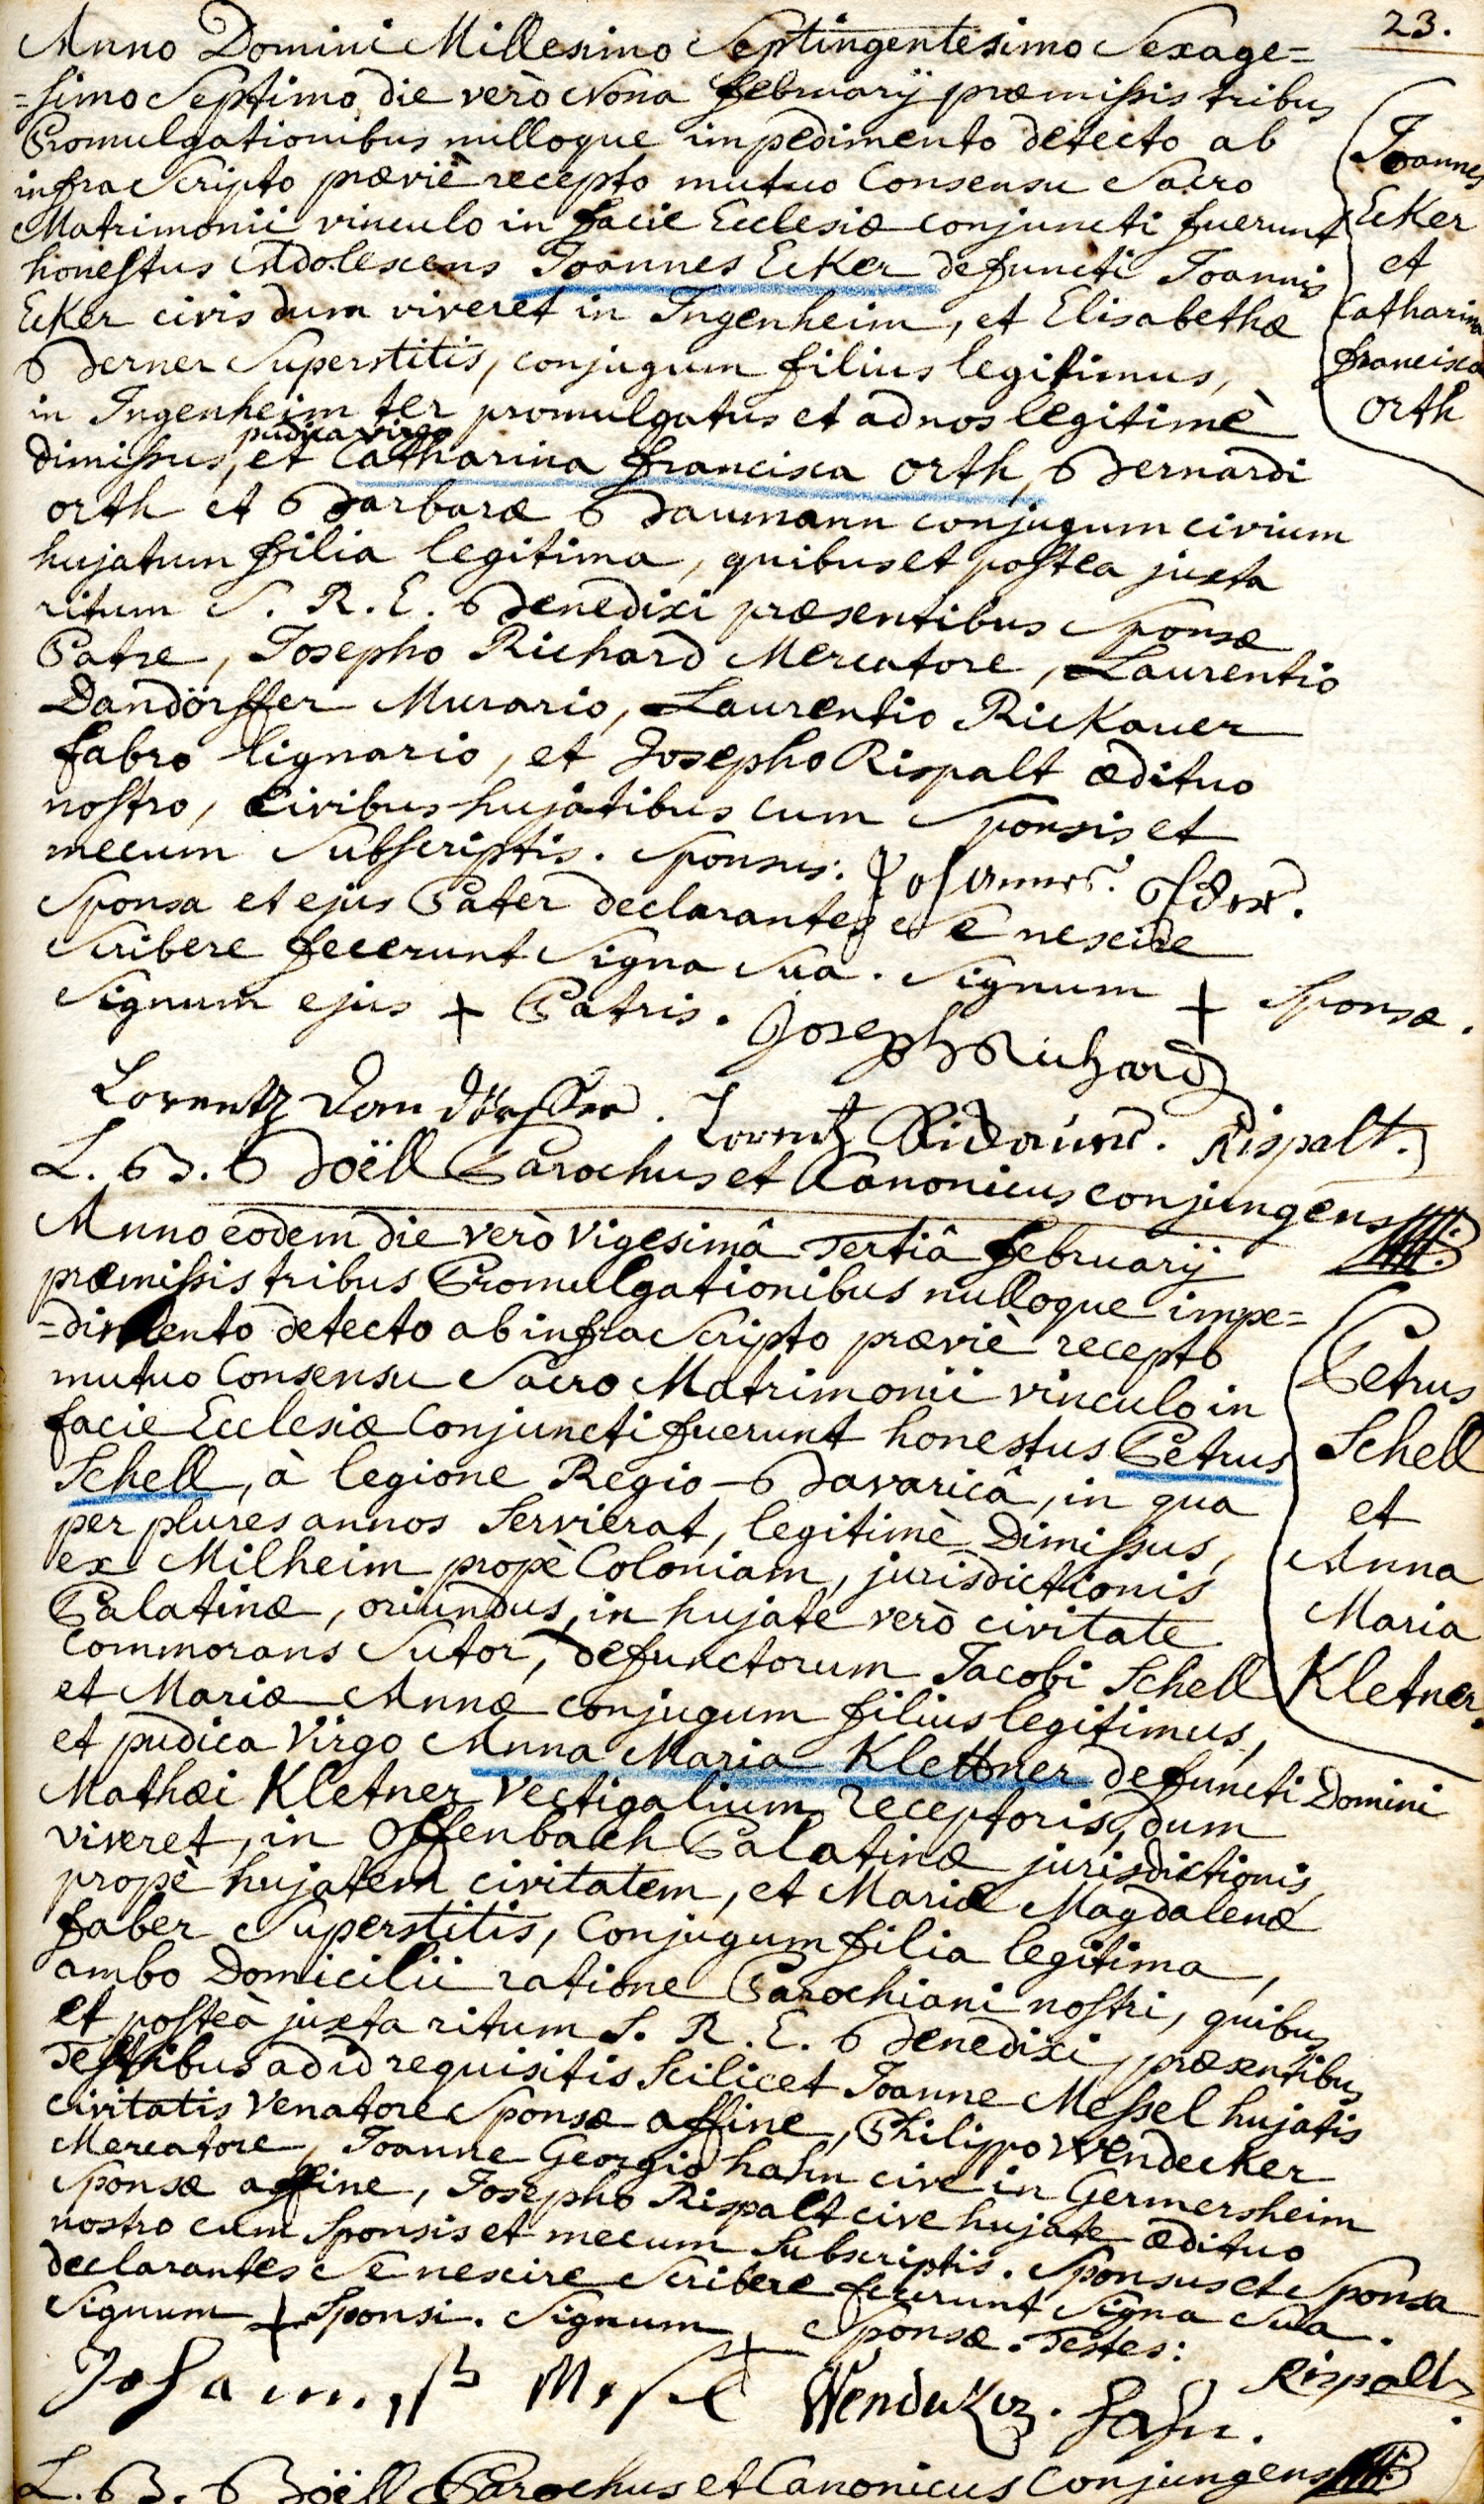 23.
Anno Domini Millesimo Septingentesimo Sexage=
=simo Septimo die verò Nona februarÿ præmissis tribus
Promulgationibus nulloque impedimento detecto ab
infra Scripto præviè recepto mutuo Consensu Sacro
Matrimonii vinculo in facie Ecclesiæ conjuncti fuerunt
honestus Adolescens Joannes Ecker defuncti Joannis
Ecker civis dum viveret in Ingenheim, et Elisabethæ
Berner Superstitis, conjugum filius legitimus,
in Ingenheim ter promulgatus et ad nos legitimè
pudica virgo
dimissus, et Catharina francisca Orth, Bernardi
Orth et Barbaræ Baumann conjugum civium
hujatum filia legitima, quibus et postea juxta
ritum S. R. E. Benedixi præsentibus Sponsæ
Patre, Josepho Richard Mercatore, Laurentio
Dandörffer Murario, Laurentio Rickauer
fabro lignario, et Josepho Rispalt ædituo
nostro, civibus hujatibus cum Sponsis et
mecum Subscriptis. Sponsus: Johannes
Sponsa et ejus Pater declarantes Se nescire
Scribere fecerunt Signa Sua. Signum + Sponsæ.
Signum ejus + Patris. Joseph Richard
Lorentz Dandörffer. Lorentz Rickauer. Rispalt.
L. B. Boëll Parochus et Canonicus conjungens
Joannes
Ecker
et
Catharina
francisca
Orth
Anno eodem die verò Vigesimâ Tertiâ februarÿ
præmissis tribus Promulgationibus nulloque impe=
=dimento detecto ab infra Scripto præviè recepto
mutuo Consensu Sacro Matrimonii vinculo in
facie Ecclesiæ Conjuncti fuerunt honestus Petrus
Schell, à legione Regio-Bavaricâ, in qua
per plures annos Servierat, legitimè Dimissus,
ex Milheim propè Coloniam, jurisdictionis
Palatinæ, oriundus, in hujate verò civitate
Commorans Sutor, defunctorum Jacobi Schell
et Mariæ Annæ conjugum filius legitimus,
et pudica Virgo Anna Maria Klettner defuncti Domini
Mathæi Kletner Vectigalium receptoris, dum
viveret, in Offenbach Palatinæ jurisdictionis
propè hujatem civitatem, et Mariæ Magdalenæ
faber Superstitis, Conjugum filia legitima,
ambo Domicilii ratione Parochiani nostri, quibus
et posteà juxta ritum S. R. E. Benedixi, præsentibus
Testibus ad id requisitis Scilicet Joanne Messel hujatis
civitatis Venatore Sponsæ affine, Philippo Wendecker
Mercatore, Joanne Georgio hahn cive in Germersheim
Sponsæ affine, Josepho Rispalt cive hujate ædituo
nostro cum Sponsis et mecum Subscriptis. Sponsus et Sponsa
declarantes Se nescire Scribere fecerunt Signa Sua.
Signum + Sponsi. Signum + Sponsæ. Testes:
Johannes Messel Wendecker. Hahn. Rispalt.
L. B. Boëll Parochus et Canonicus Conjungens
Petrus
Schell
et
Anna
Maria
Kletner.